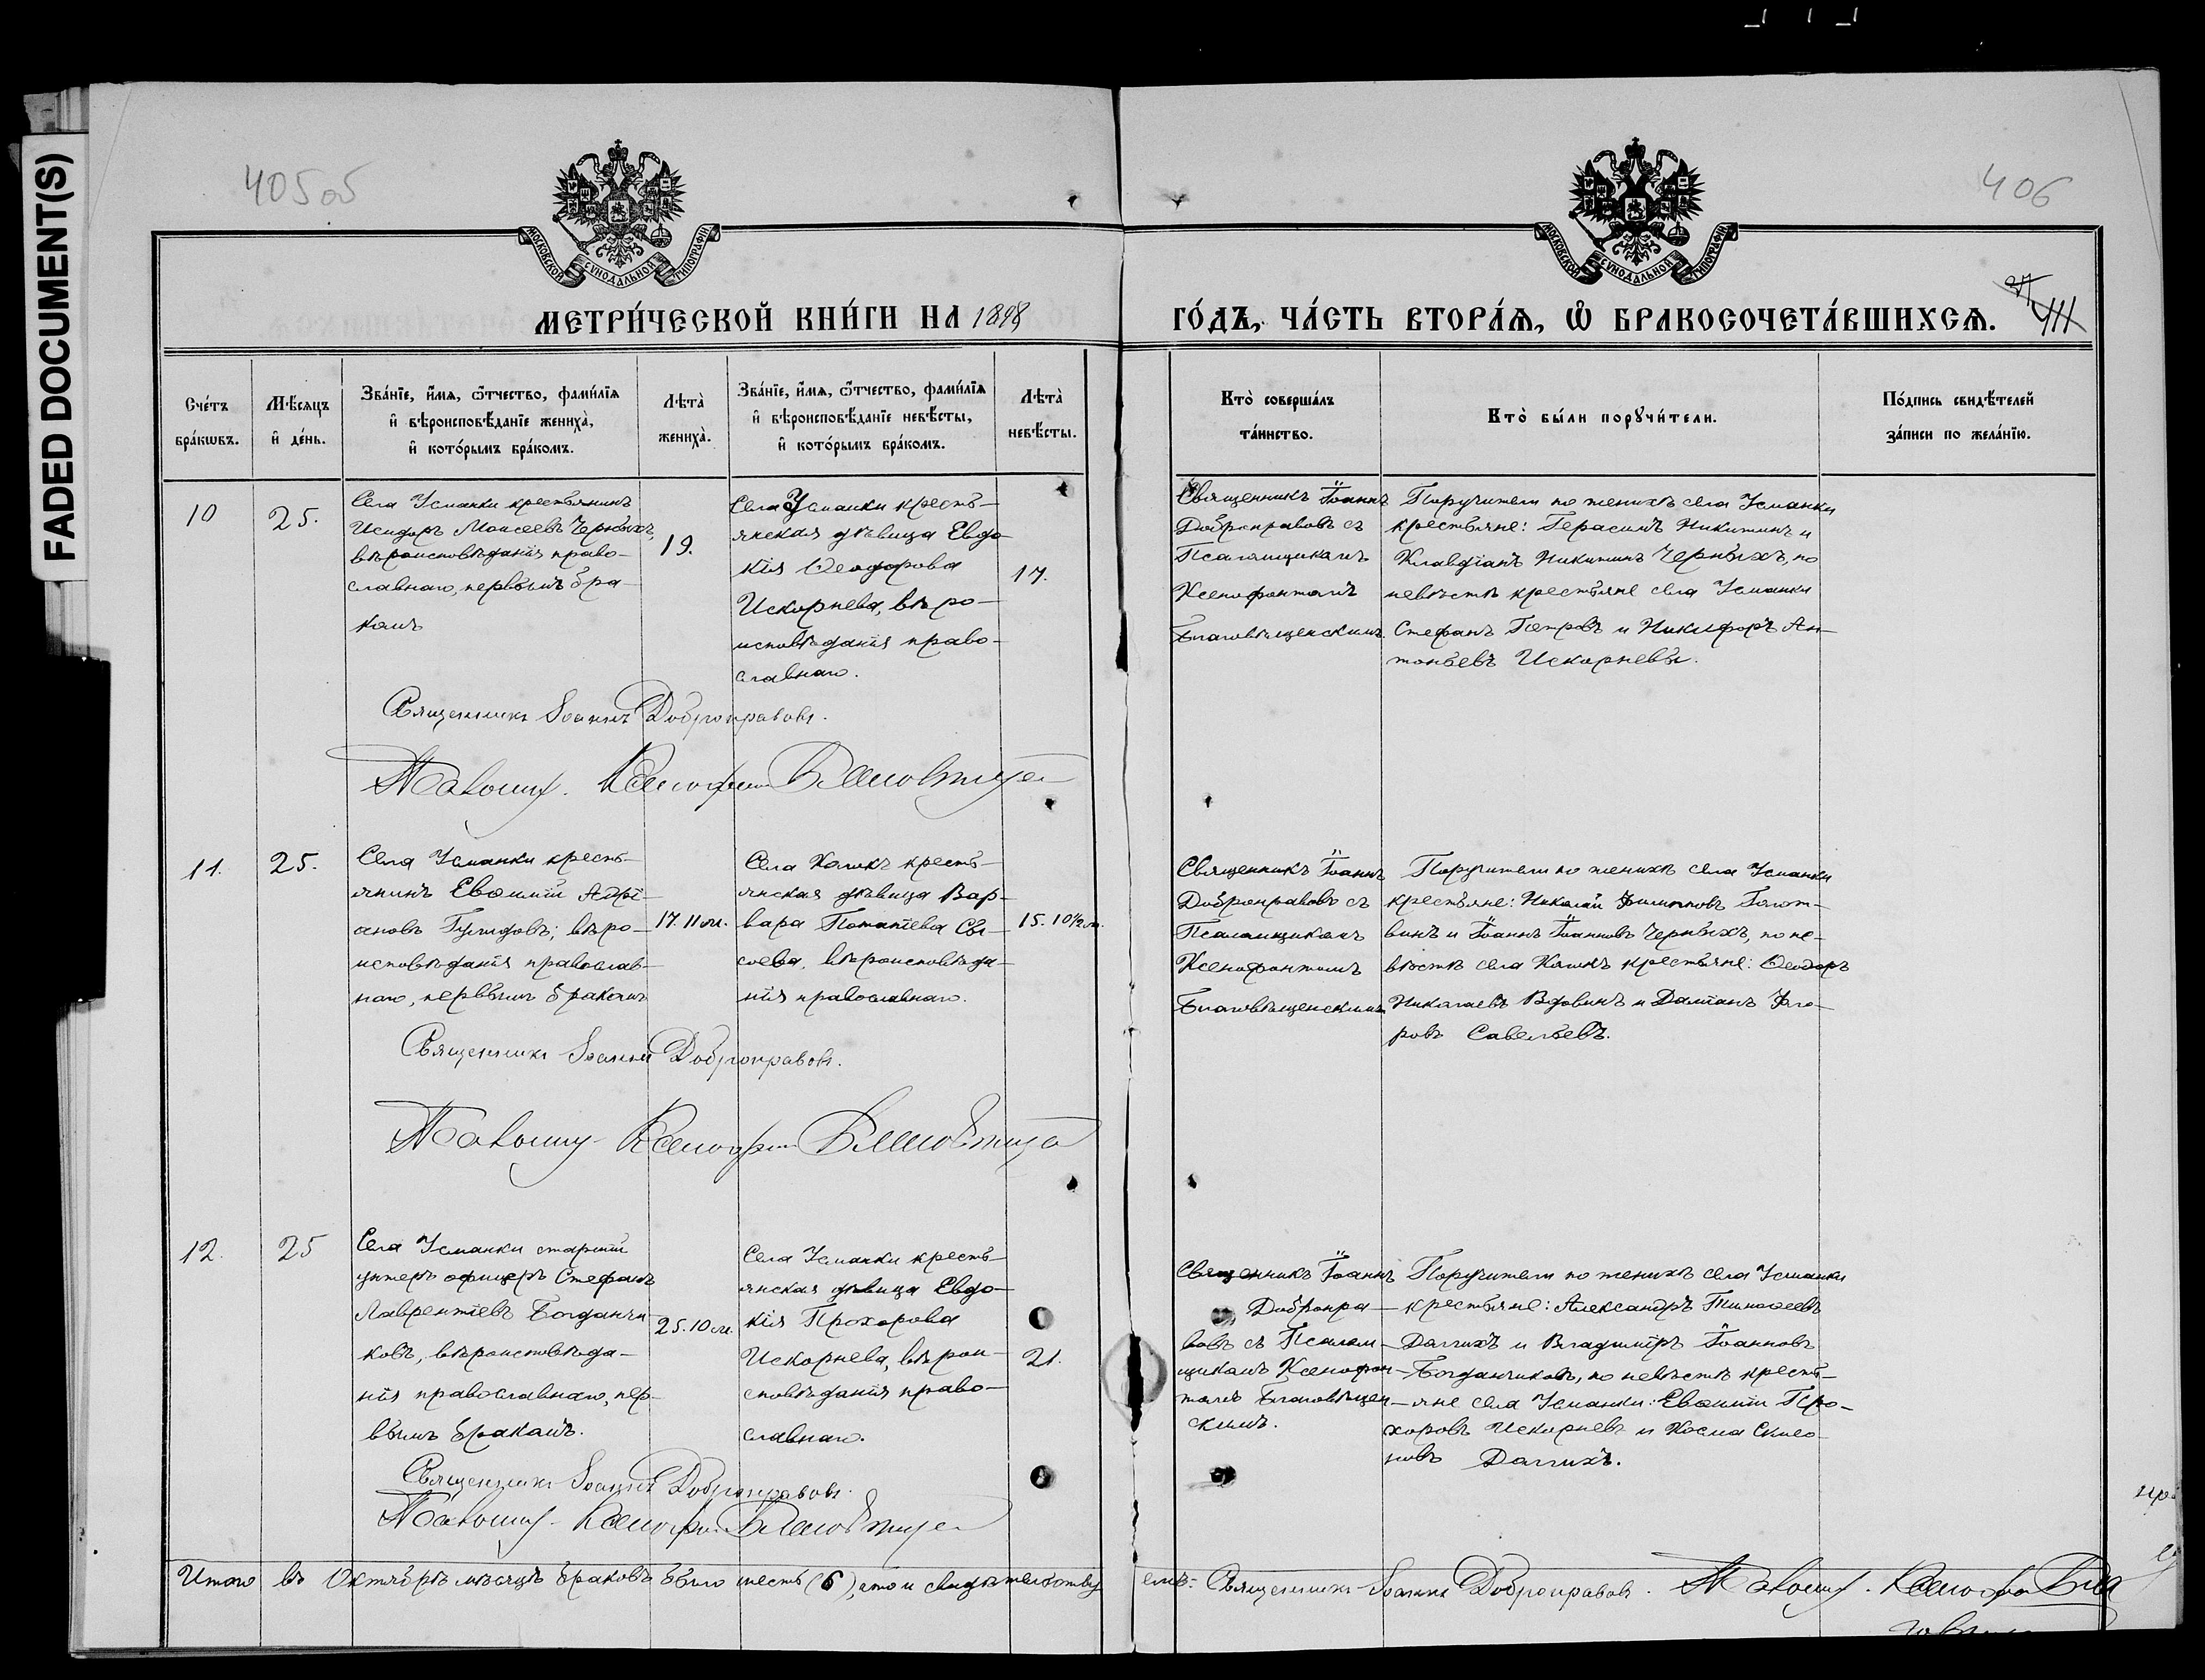 FADED DOCUMENT(S)
405об
406
МОСКОВСКОЙ СѴНОДАЛЬНОЙ ТИПОГРАФІИ
МОСКОВСКОЙ СѴНОДАЛЬНОЙ ТИПОГРАФІИ
МЕТРИ́ЧЕСКОЙ КНИ́ГИ НА 1898
ГО́ДЪ, ЧА́СТЬ ВТОРА́Ѧ, Ѽ БРАКОСОЧЕТА́ВШИХСѦ.
411
Сче́тъ
бра́кѡвъ.
Мѣ́сяцъ
и҆ де́нь.
Зва́нїе, и҆́мѧ, ѻ҆́тчество, фами́лїѧ
и҆ вѣроисповѣ́данїе женихà,
и҆ кото́рымъ бра́комъ.
Лѣтà
женихà.
Зва́нїе, и҆́мѧ, ѻ҆́тчество, фами́лїѧ
и҆ вѣроисповѣ́данїе невѣ́сты,
и҆ кото́рымъ бра́комъ.
Лѣтà
невѣ́сты.
Ктò соверша́лъ
та́инство.
Ктò бы́ли порꙋчи́тели.
По́дпись свидѣ́телей
за́писи по жела́нїю.
10
25.
Села Усманки крестьянинъ
Исидоръ Моисеевъ Черныхъ,
вѣроисповѣданія право-
славнаго, первымъ бра-
комъ
19.
Села Усманки кресть-
янская дѣвица Евдо-
кія Ѳеодорова
Искорнева, вѣро-
исповѣданія право-
славнаго.
17.
Священникъ Іоаннъ
Добронравовъ съ
Псаломщикомъ
Ксенофонтомъ
Благовѣщенскимъ.
Поручители по женихѣ села Усманки
крестьяне: Герасимъ Никитинъ и
Клавдіанъ Никитинъ Черныхъ, по
невѣстѣ крестьяне села Усманки
Стефанъ Петровъ и Никифоръ Ан-
тоньевъ Искорневы.
Священникъ Іоаннъ Добронравовъ.
11.
25.
Села Усманки кресть-
янинъ Евѳимій Адрі-
ановъ Гулидовъ; вѣро-
исповѣданія православ-
наго, первымъ бракомъ
17. 11 м.
Села кресть-
янская дѣвица Вар-
вара Потапіева Сы-
соева, вѣроисповѣда-
нія православнаго.
15. 10½ м.
Священникъ Іоаннъ
Добронравовъ съ
Псаломщикомъ
Ксенофонтомъ
Благовѣщенскимъ
Поручители по женихѣ села Усманки
крестьяне: Николай Филипповъ Болот-
винъ и Іоаннъ Іоанновъ Черныхъ, по не-
вѣстѣ села крестьяне: Ѳеодоръ
Николаевъ Вдовинъ и Даміанъ Его-
ровъ Савельевъ.
Священникъ Іоаннъ Добронравовъ.
12.
25
Села Усманки старшій
унтеръ офицеръ Стефанъ
Лаврентіевъ Богданчи-
ковъ, вѣроисповѣда-
нія православнаго, пер-
вымъ бракомъ.
25. 10 м.
Села Усманки кресть-
янская дѣвица Евдо-
кія Прохорова
Искорнева, вѣрои-
сповѣданія право-
славнаго.
21.
Священникъ Іоаннъ
Добронра-
вовъ съ Псалом-
щикомъ Ксенофон-
томъ Благовѣщен-
скимъ.
Поручители по женихѣ села Усманки
крестьяне: Александръ Тимоѳеевъ
Долгихъ и Владиміръ Іоанновъ
Богданчиковъ, по невѣстѣ кресть-
яне села Усманки: Евѳимій Про-
хоровъ Искорневъ и Косма Симео-
новъ Долгихъ.
Священникъ Іоаннъ Добронравовъ.
Итого въ Октябрѣ мѣсяцѣ браковъ было шесть (6), что и свидѣтельству
емъ: Священникъ Іоаннъ Добронравовъ.